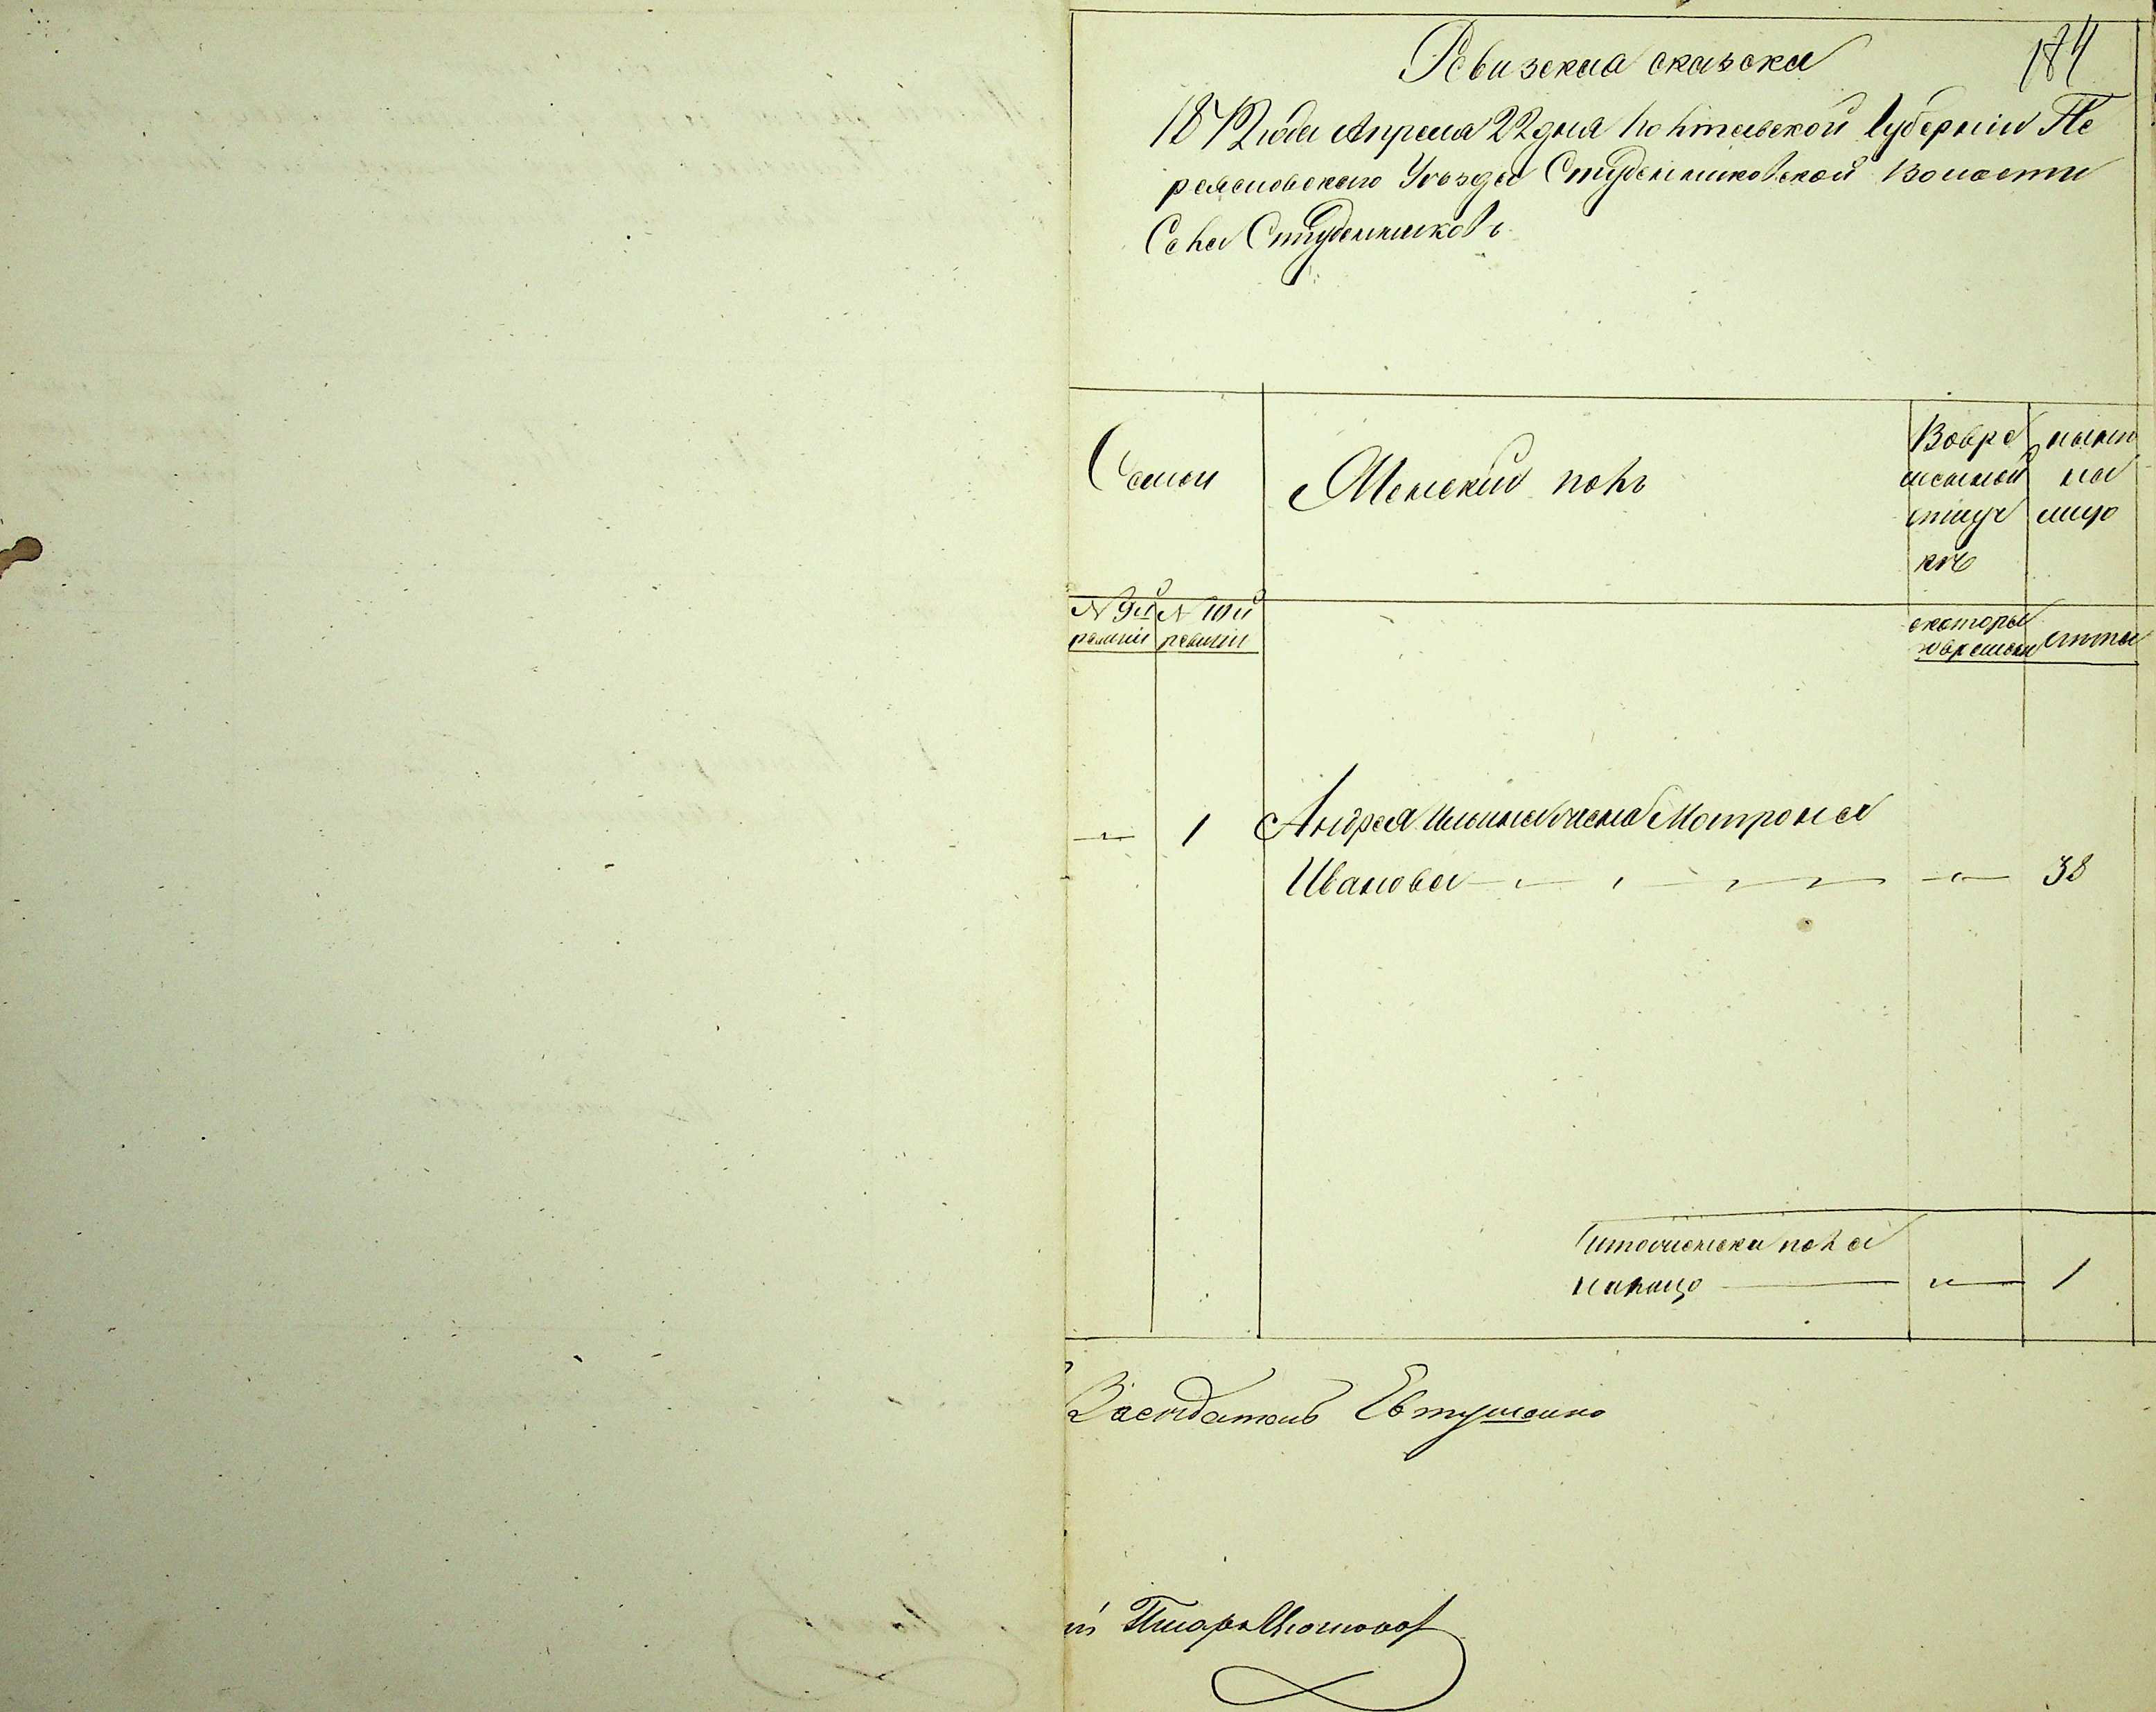 184
Ревизская сказска
1872 года Апреля 22 дня Полтавской Губерніи Пе
реяславскаго Уѣзда Студенниковской Волости
Села Студенниковъ
Семьи
Женский полъ
Вовре
менной
отлуч
кѣ
нынѣ
на
лицо
№ 9й ревизіи
№ 10й ревизіи
скоторы
хъ времени
лѣта
1 Андрея Ильина жена Матрона
Иванова 38
Итого женска пола
налицо 1
Засѣдатель Евтушенко
й Писарь